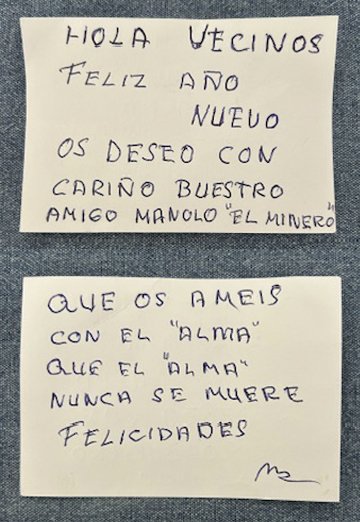 HOLA VECINOS
FELIZ AÑO
NUEVO
OS DESEO CON
CARIÑO BUESTRO
AMIGO MANOLO "EL MINERO"
QUE OS AMEIS
CON EL "ALMA"
QUE EL "ALMA"
NUNCA SE MUERE
FELICIDADES